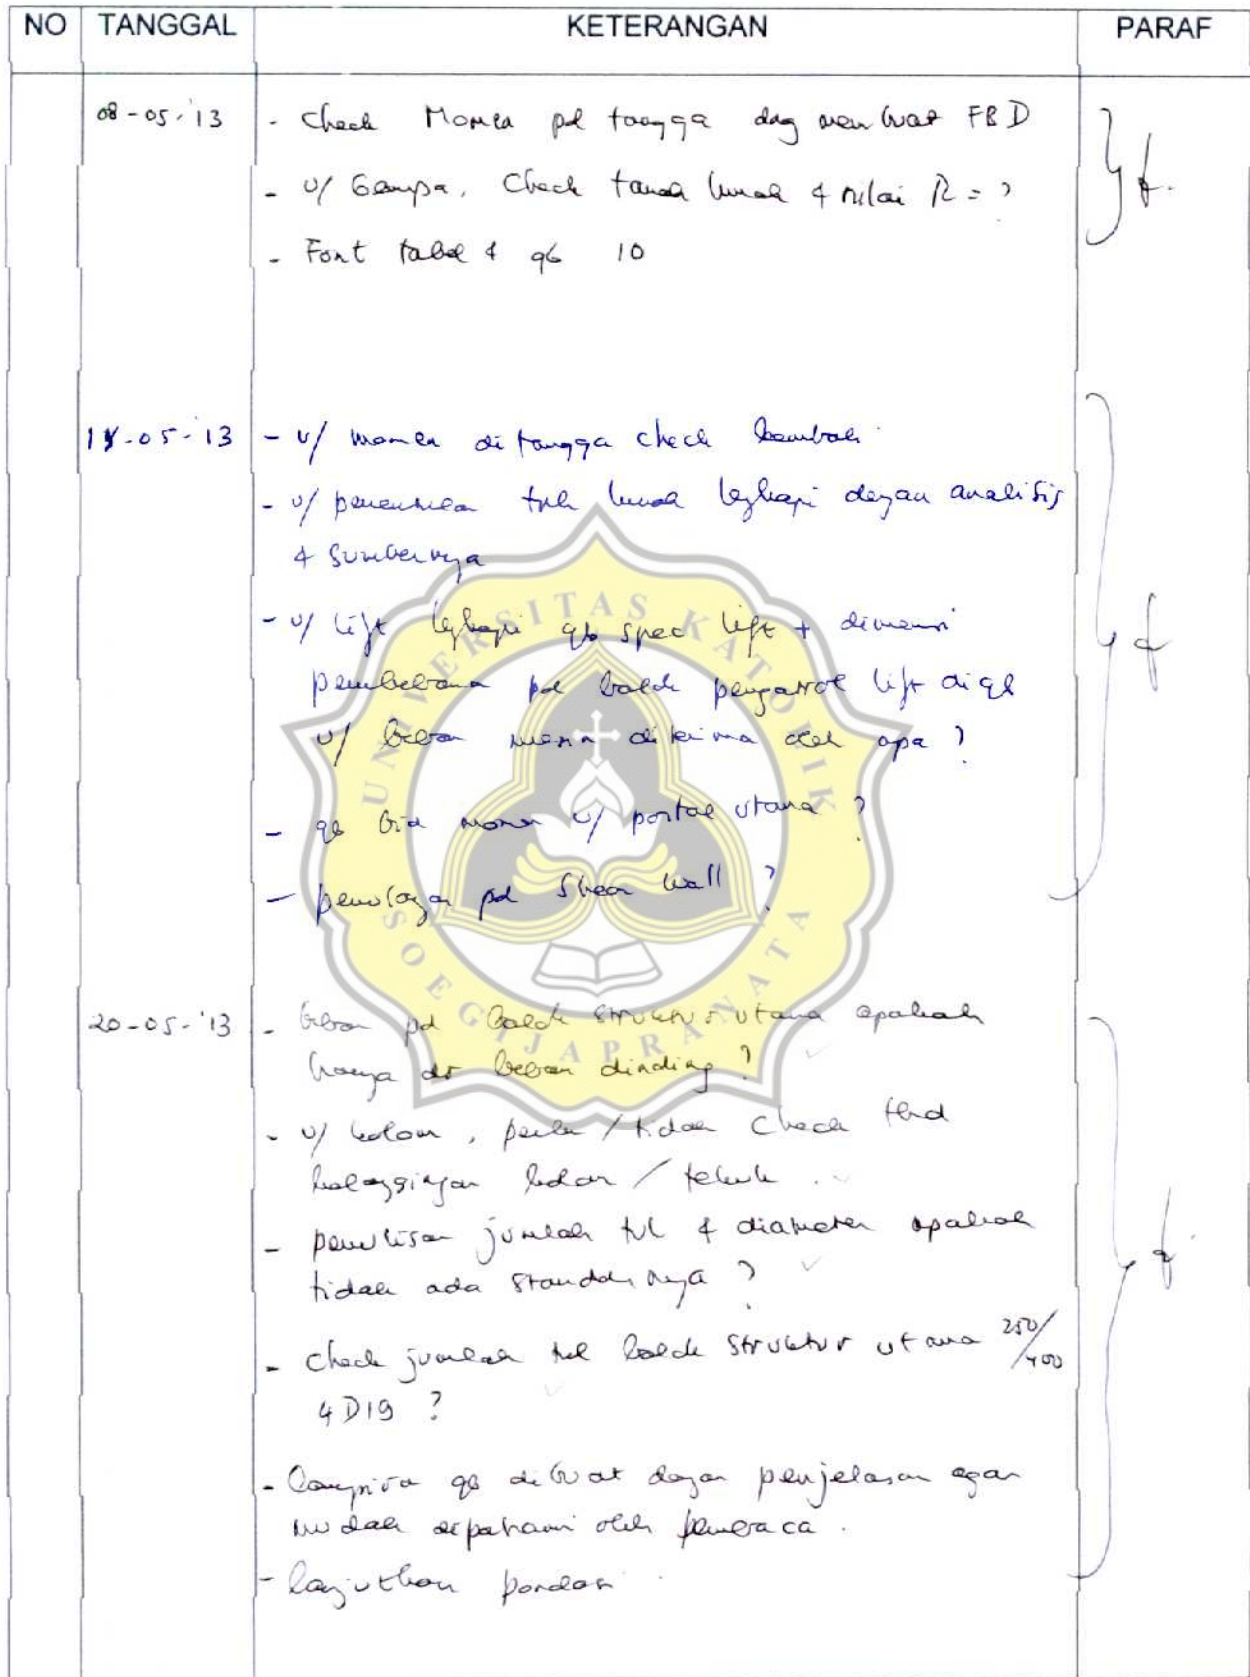 NO TANGGAL KETERANGAN PARAF
08-05-'13 - Check Momen pd tangga dng membuat FBD
- u/ Gempa, Check tanah lunak & nilai R = ?
- Font tabel & gb 10
-05-'13 - u/ momen di tangga check kembali
- u/ penentuan tnh lunak lengkapi dengan analisis
& sumbernya
- u/ lift lengkapi gb spec lift + dimensi
pembebanan pd balok pengatrol lift digb
u/ beban mesin diterima oleh apa ?
- gb bid momen u/ portal utama ?
- penulangan pd Shear Wall ?
20-05-'13 - beban pd balok struktur utama apakah
hanya dr beban dinding ?
- u/ kolom, perlu / tidak check thd
kelangsingan kolom / tekuk
- penulisan jumlah tul & diameter apakah
tidak ada standarnya ?
- Check jumlah tul balok struktur utama 250/400
4 D19 ?
- lampiran gb dibuat dengan penjelasan agar
mudah dipahami oleh pembaca.
- lanjutkan pondasi
UNIVERSITAS KATOLIK
SOEGIJAPRANATA